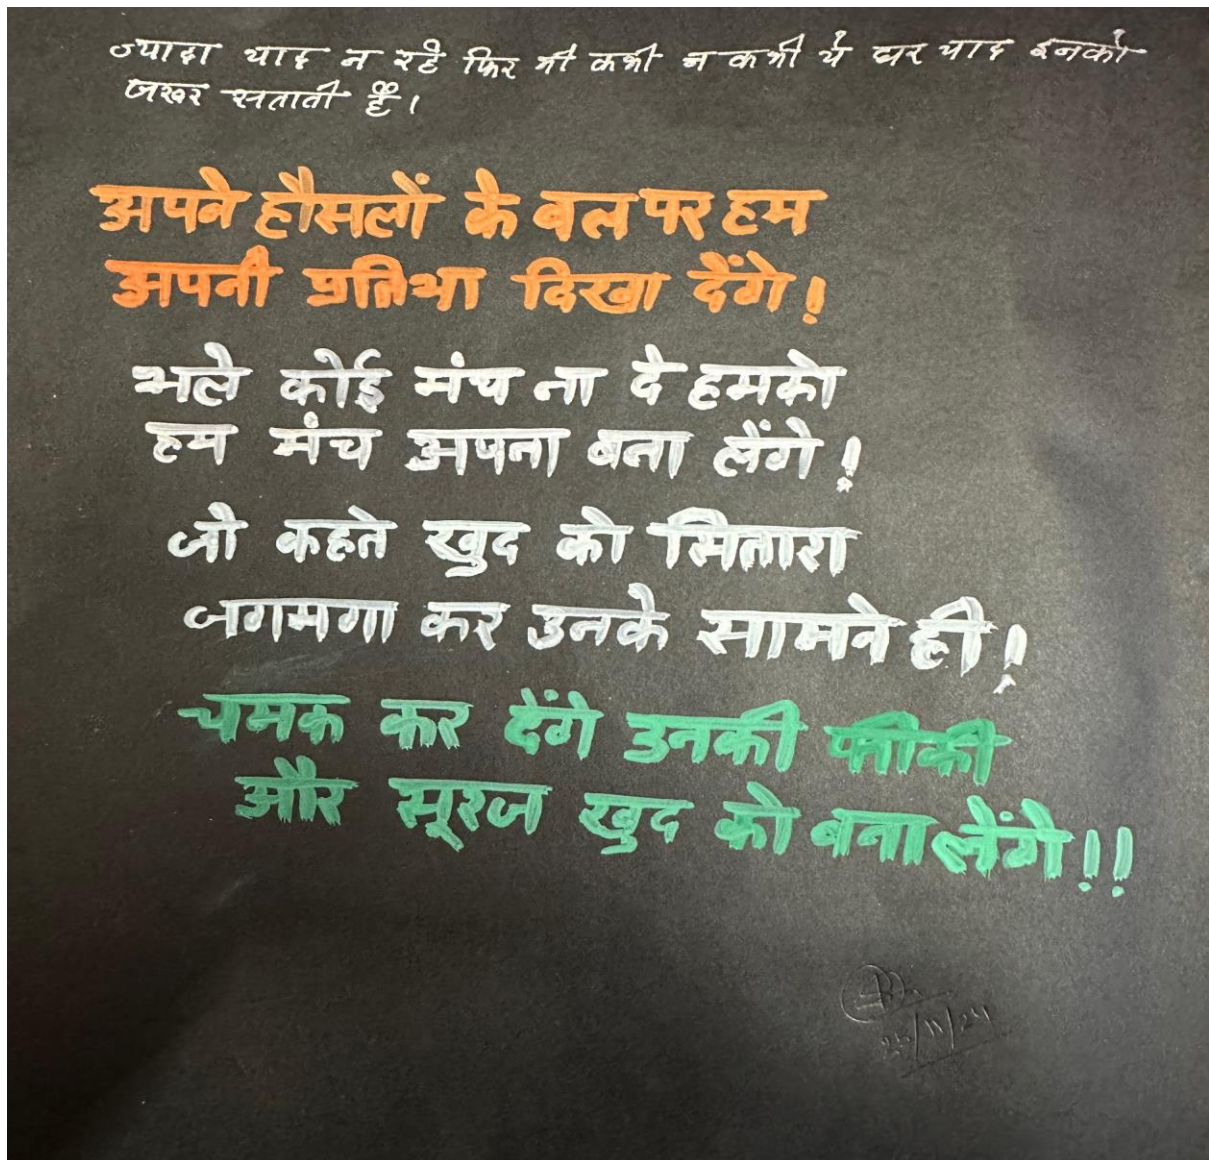 ज्यादा याद न रहे फिर भी कभी न कभी ये घर याद इनको
जरूर सताती हैं।
अपने हौसलों के बल पर हम
अपनी प्रतिभा दिखा देंगे!
भले कोई मंच ना दे हमको
हम मंच अपना बना लेंगे!
जो कहते खुद को सितारा
जगमगा कर उनके सामने ही!
चमक कर देंगे उनकी फीकी
और सूरज खुद को बना लेंगे!!
25/11/24